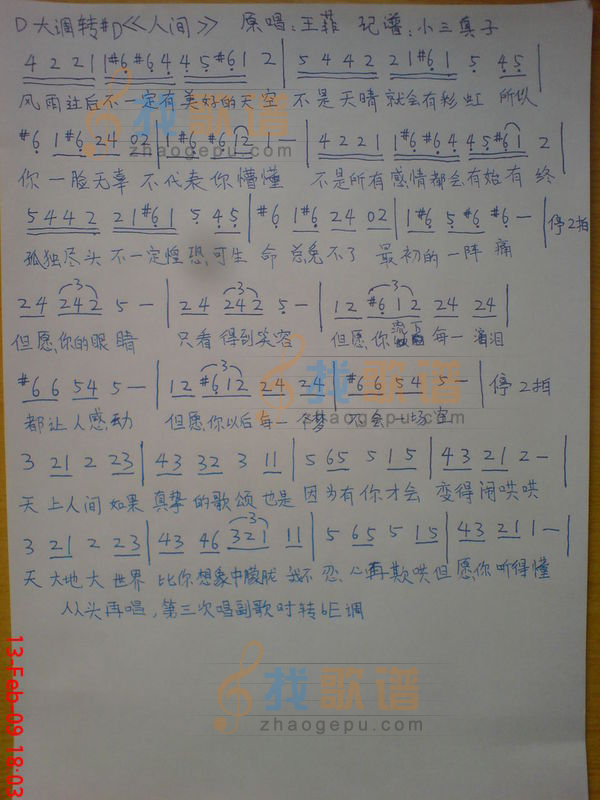 D 大调转#D《人间》 原唱:王菲 记谱:小三真子
4 2 2 1 1 #6 #6 4 4 5 #6 1 2 | 5 4 4 2 2 1 #6 1 5 4 5 |
风雨过后不一定有美好的天空 不是天晴就会有彩虹 所以
#6 1 #6 2 4 0 2 | 1 #6 #6 1 2 1 — | 4 2 2 1 1 #6 #6 4 4 5 #6 1 2 |
你一脸无辜 不代表你懵懂 不是所有感情都会有始有终
5 4 4 2 2 1 #6 1 5 4 5 | #6 1 #6 2 4 0 2 | 1 #6 5 #6 #6 — | 停2拍
孤独尽头 不一定惶恐 可生命总免不了 最初的一阵痛
2 4 2 4 2 5 — | 2 4 2 4 2 5 — | 1 2 #6 1 2 2 4 2 4 |
但愿你的眼睛 只看得到笑容 但愿你流下每一滴泪
#6 6 5 4 5 — | 1 2 #6 1 2 2 4 2 4 | #6 6 5 4 5 — | 停2拍
都让人感动 但愿你以后每一个梦 不会一场空
3 2 1 2 2 3 | 4 3 3 2 3 1 1 | 5 6 5 5 1 5 | 4 3 2 1 2 — |
天上人间 如果真挚的歌颂 也是因为有你才会 变得闹哄哄
3 2 1 2 2 3 | 4 3 4 6 3 2 1 1 1 | 5 6 5 5 1 5 | 4 3 2 1 1 — |
天大地大世界 比你想象中朦胧 我不忍心再欺哄 但愿你听得懂
从头再唱,第三次唱副歌时转bE调
找歌谱
zhaogepu.com
找歌谱
zhaogepu.com
找歌谱
zhaogepu.com
13-Feb-09 18:03